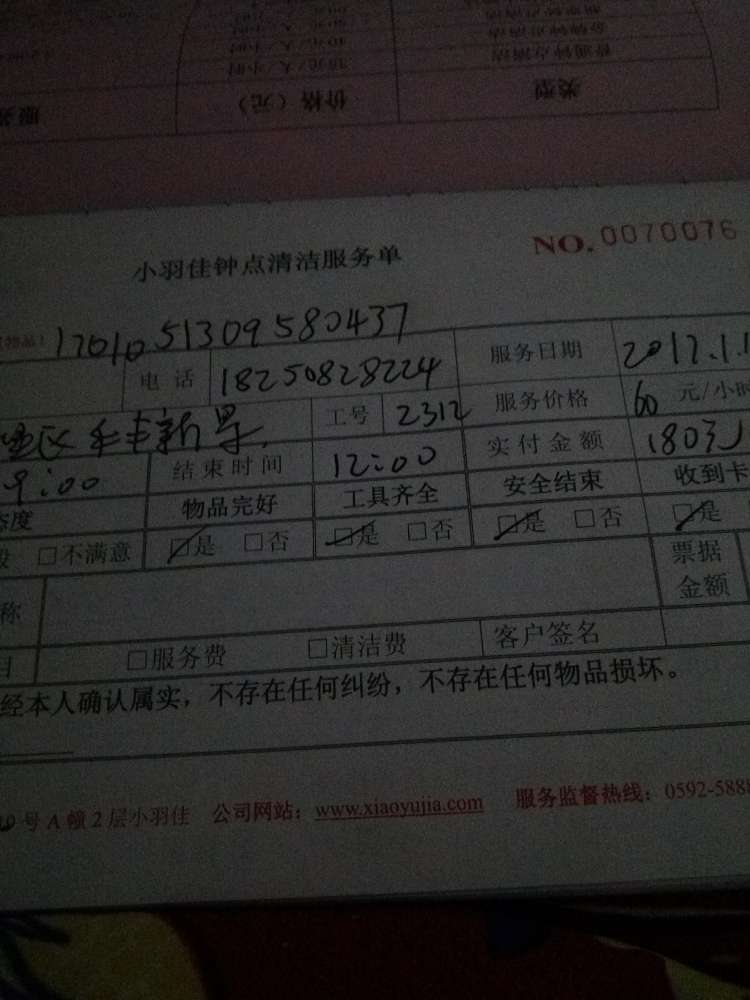 类型 价格（元）
小羽佳钟点清洁服务单 NO. 0070076
1701051309580437
电话 18250828224 服务日期 2017.1.1
新景 工号 2312 服务价格 60 元/小时
9:00 结束时间 12:00 实付金额 180元
态度 物品完好 工具齐全 安全结束 收到卡
□不满意 □是 □否 □是 □否 □是 □否 □是
称 票据金额
□服务费 □清洁费 客户签名
经本人确认属实，不存在任何纠纷，不存在任何物品损坏。
号A幢2层小羽佳 公司网站：www.xiaoyujia.com 服务监督热线：0592-5888